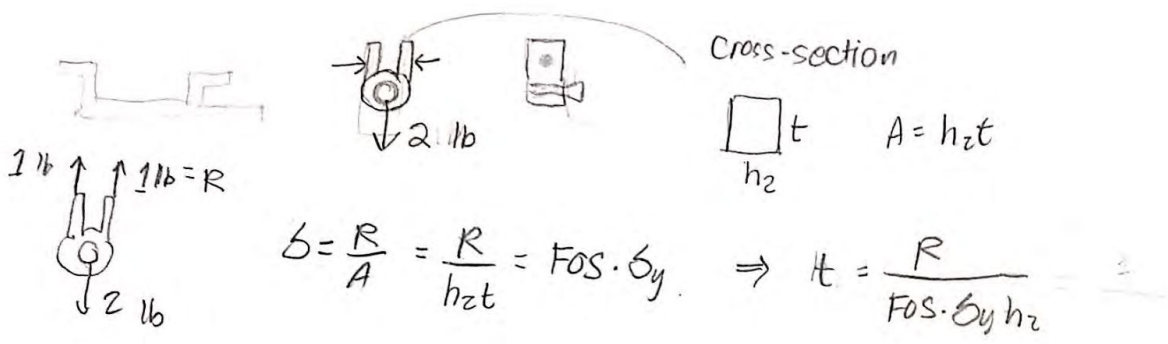 Cross-section
2 lb
t
A = h₂t
h₂
1 lb
1 lb = R
2 lb
σ = R/A = R/(h₂t) = FOS · σy. ⇒ t = R/(FOS · σy h₂)